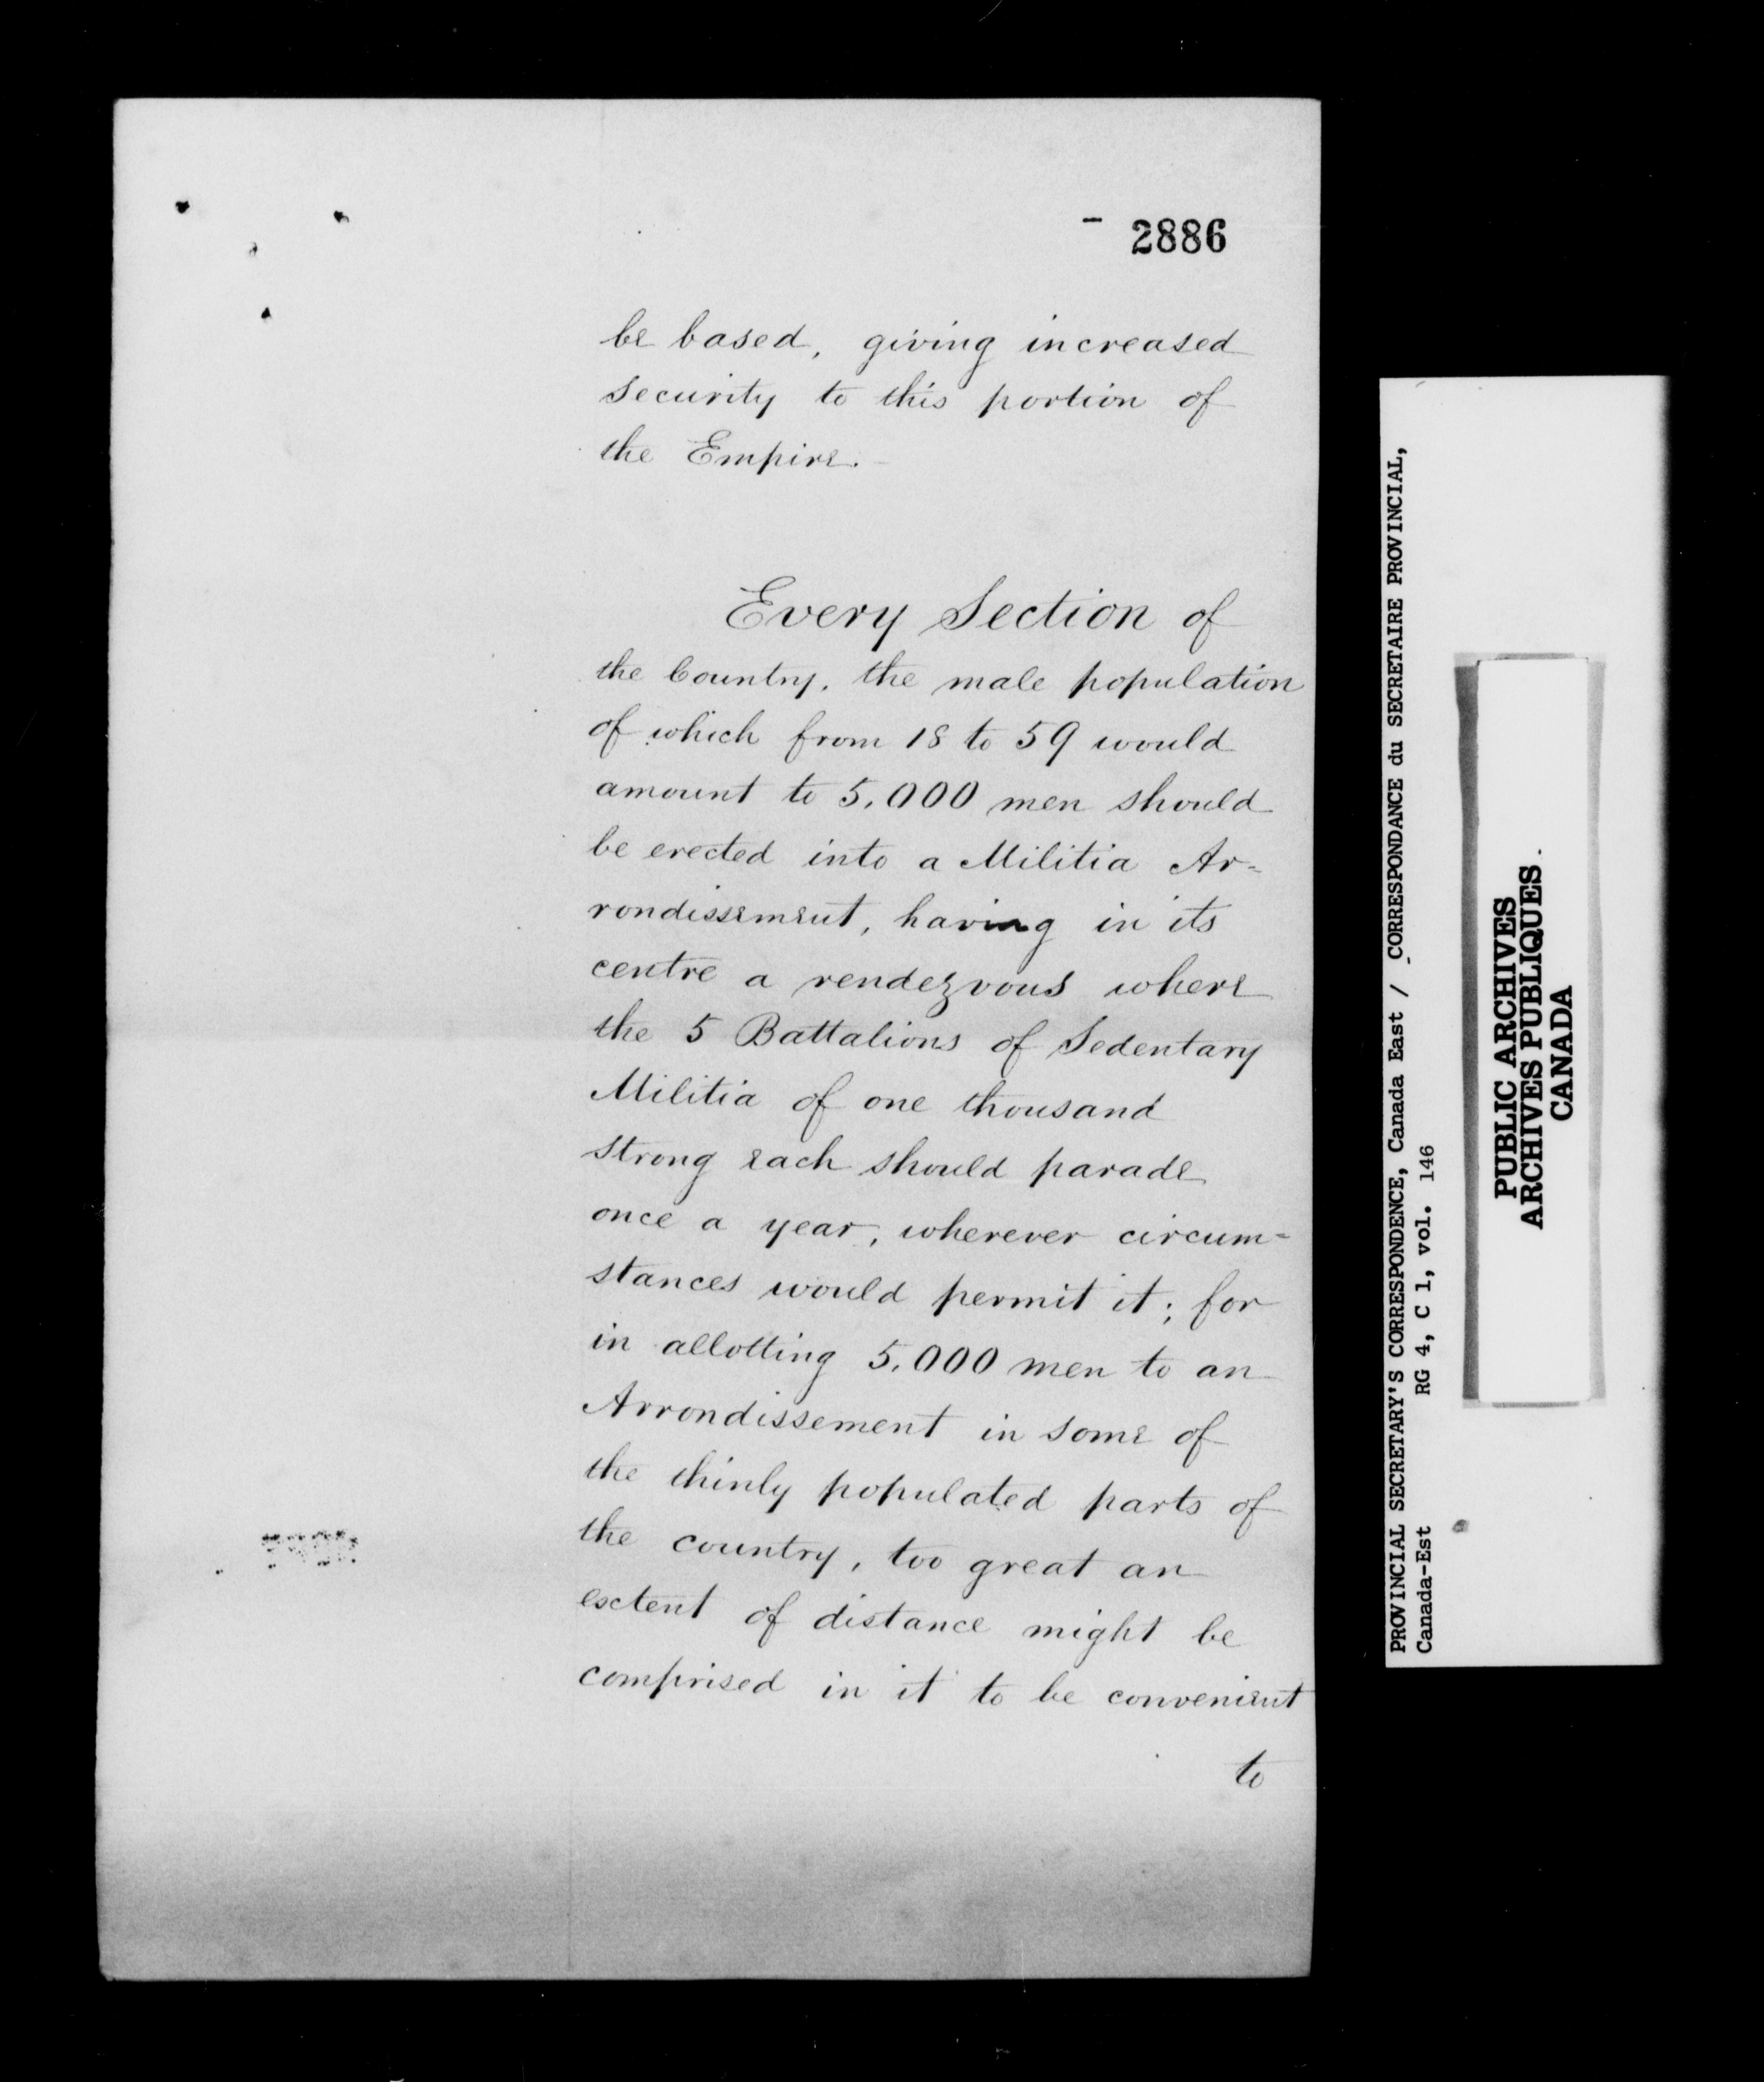 2886
be based, giving increased
security to this portion of
the Empire.
Every Section of
the Country, the male population
of which from 18 to 59 would
amount to 5,000 men should
be erected into a Militia Ar-
rondissement, having in its
centre a rendezvous where
the 5 Battalions of Sedentary
Militia of one thousand
strong each should parade
once a year, wherever circum-
stances would permit it; for
in allotting 5,000 men to an
Arrondissement in some of
the thinly populated parts of
the country, too great an
extent of distance might be
comprised in it to be convenient
to
PROVINCIAL SECRETARY'S CORRESPONDENCE, Canada East / CORRESPONDANCE du SECRETAIRE PROVINCIAL,
Canada-Est RG 4, C 1, vol. 146
PUBLIC ARCHIVES
ARCHIVES PUBLIQUES
CANADA